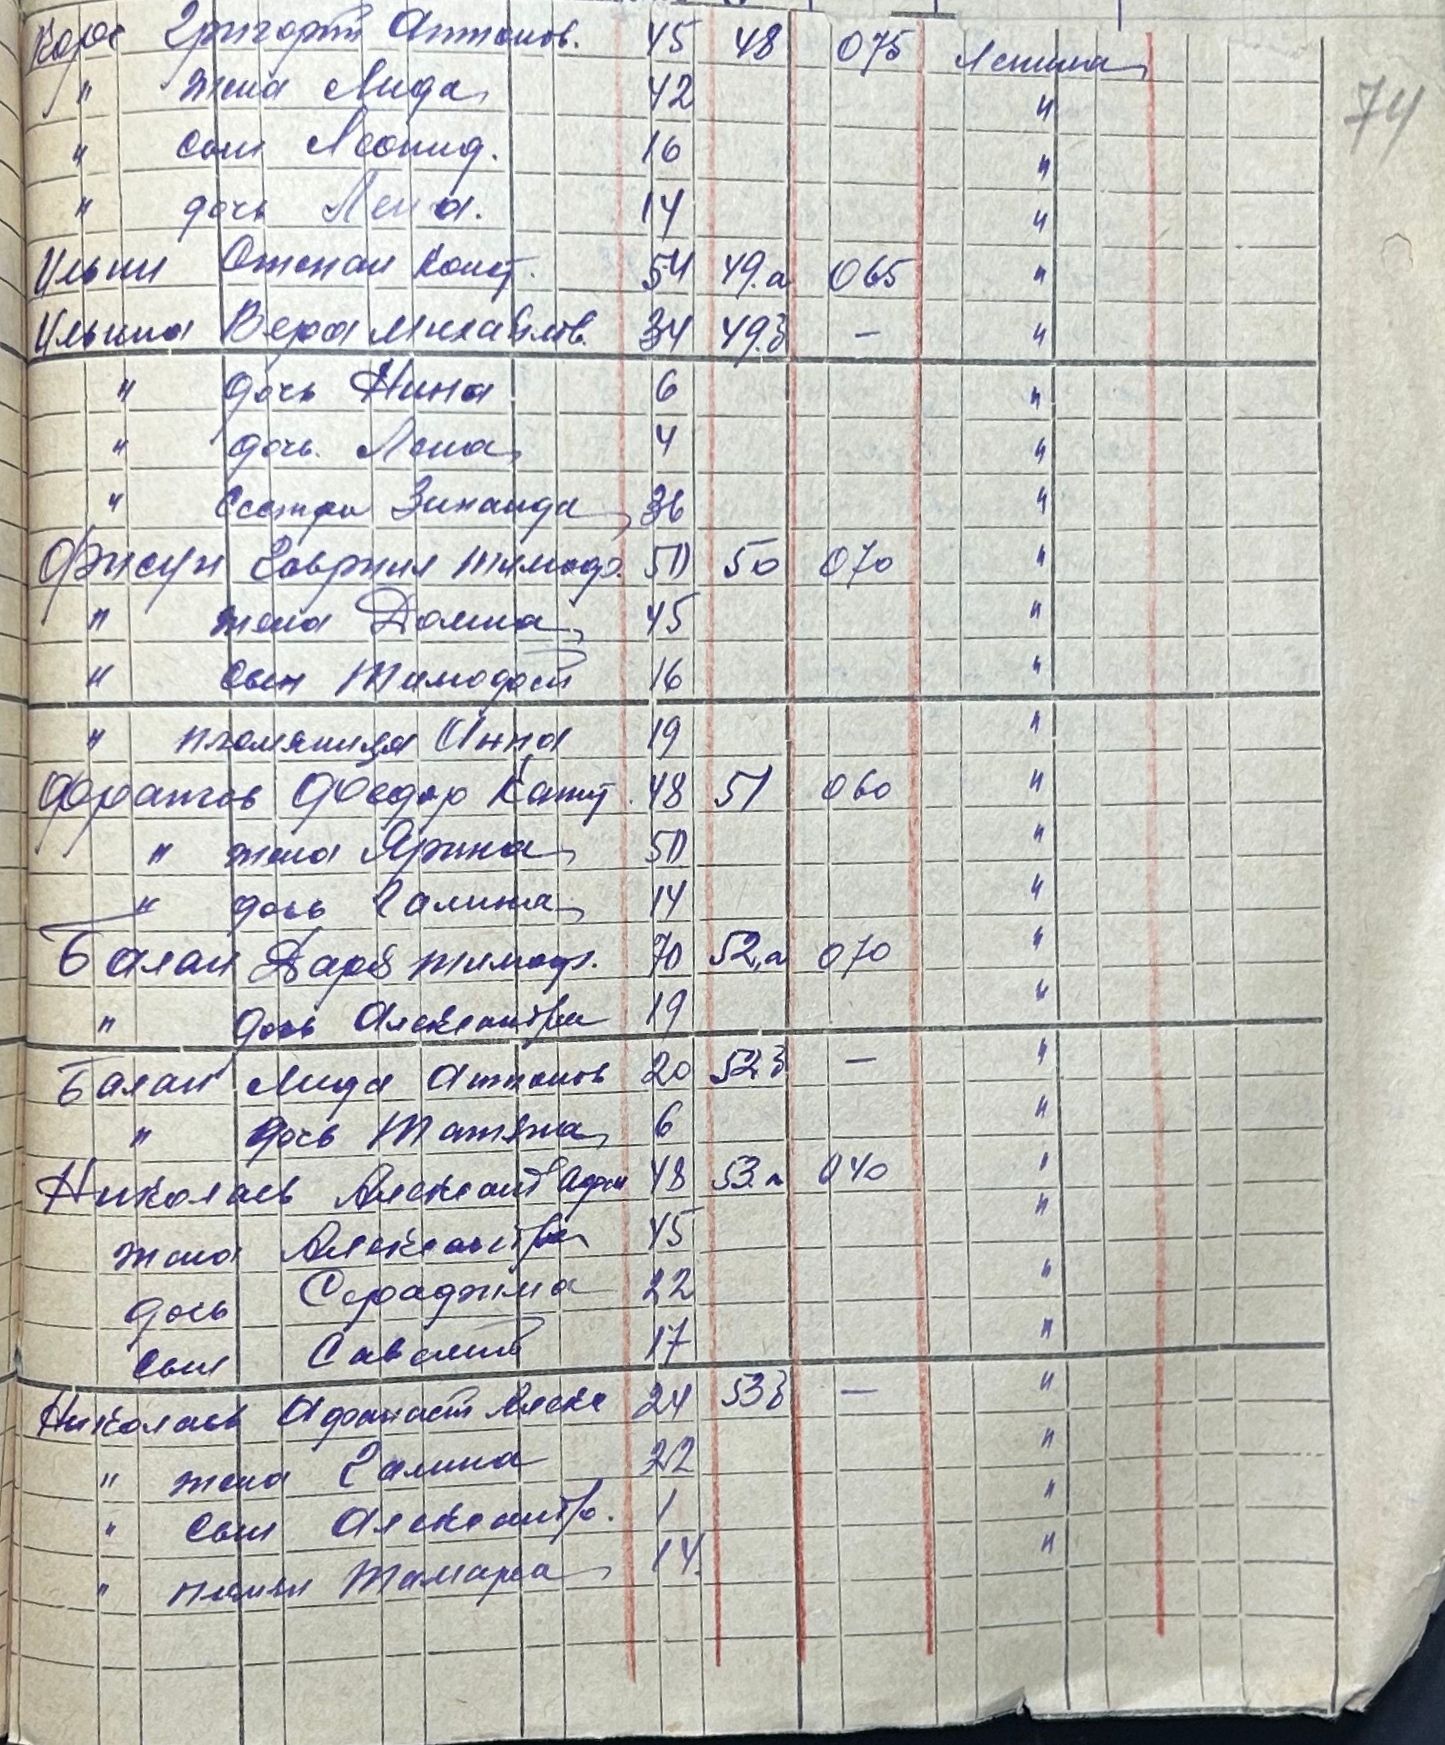 74
Корс Григорий Антонов. 45 48 075 Ленина
" жена Лида 42 "
" сын Леонид. 16 "
" дочь Лена. 14 "
Ильин Степан Конст. 54 49.а 065 "
Ильина Вера Михайлов. 34 49.б — "
" дочь Нина 6 "
" дочь. Лена 4 "
" Сестра Зинаида 36 "
Фисун Гаврил Тимоф. 50 50 070 "
" жена Домна 45 "
" сын Тимофей 16 "
" племяница Анна 19 "
Франгов Федор 48 51 060 "
" жена Ярина 50 "
" дочь Галина 14 "
Балан Дарь Тимоф. 70 52,а 070 "
" дочь Александра 19 "
Балан Лида Антонов 20 52б — "
" дочь Татяна 6 "
Николаев Александ Афан 48 53.а 040 "
жена Александра 45 "
дочь Серафима 22 "
сын Савелий 17 "
Николаев Афанасий Алекс 24 53б — "
" жена Галина 22 "
" сын Александр. 1 "
" племян Тамара 14. "